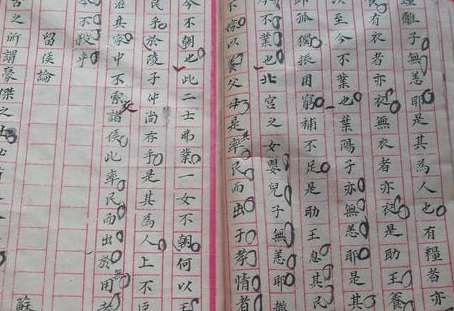 離子無恙耶是其為人也有糧者亦
有衣者亦衣無衣者亦衣是助王養
至今不業也葉陽子亦無恙耶是其
孤獨振困窮補不足是助王息其民
今不業也北宮之女嬰兒子無恙耶撤
不嫁以養父母是率民而出于孝情者
今不朝也此二士弗業一女不朝何以王
民乎於陵子仲尚存乎是其為人上不臣
治其家中不索諸侯此率民而出於無用
今不殺乎
留侯論
蘇
古之所謂豪傑之士